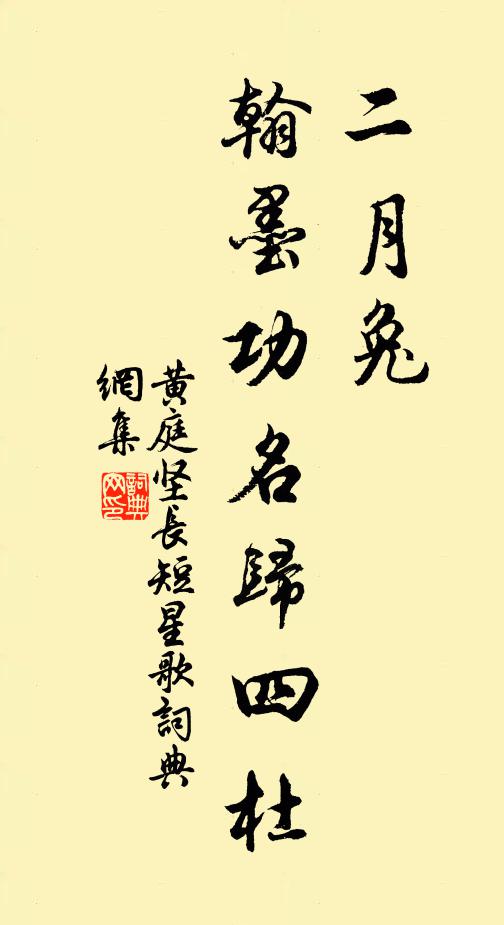 二月兔
翰墨功名歸四杜
黄庭坚長短星歌詞典
網集
詞典
网印